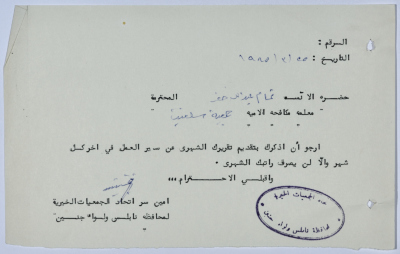 الرقم :
التاريخ : ١٩٨٥/٢/٢٥
حضرة الآنسة المحترمة
معلمة مكافحة الامية
ارجو أن اذكرك بتقديم تقريرك الشهرى عن سير العمل في اخر كل
شهر والّا لن يصرف راتبك الشهرى ٠
واقبلي الاحترام ،،،
امين سر اتحاد الجمعيات الخيرية
لمحافظة نابلس ولواء جنين
اتحاد الجمعيات الخيرية
لمحافظة نابلس ولواء جنين